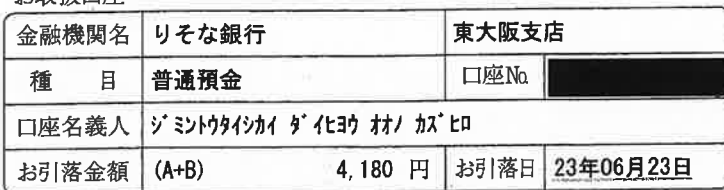 金融機関名 りそな銀行 東大阪支店
種 目 普通預金 口座№
口座名義人 ジミントウタイシカイ ダイヒヨウ オオノ カズヒロ
お引落金額 (A+B) 4,180 円 お引落日 23年06月23日